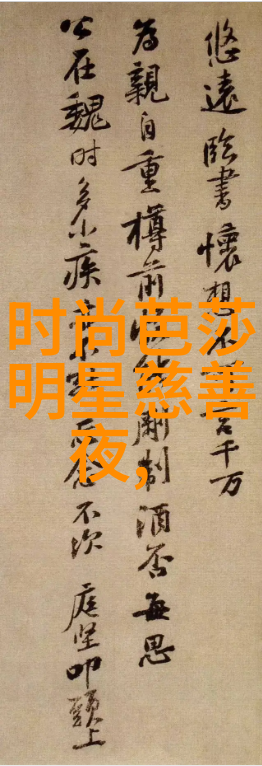 悠遠臨書懷想不言千万
為親自重樽前剛制酒否每思
公在魏时多小疾不次庭坚叩頭上
时尚芭莎
明星慈善
夜,